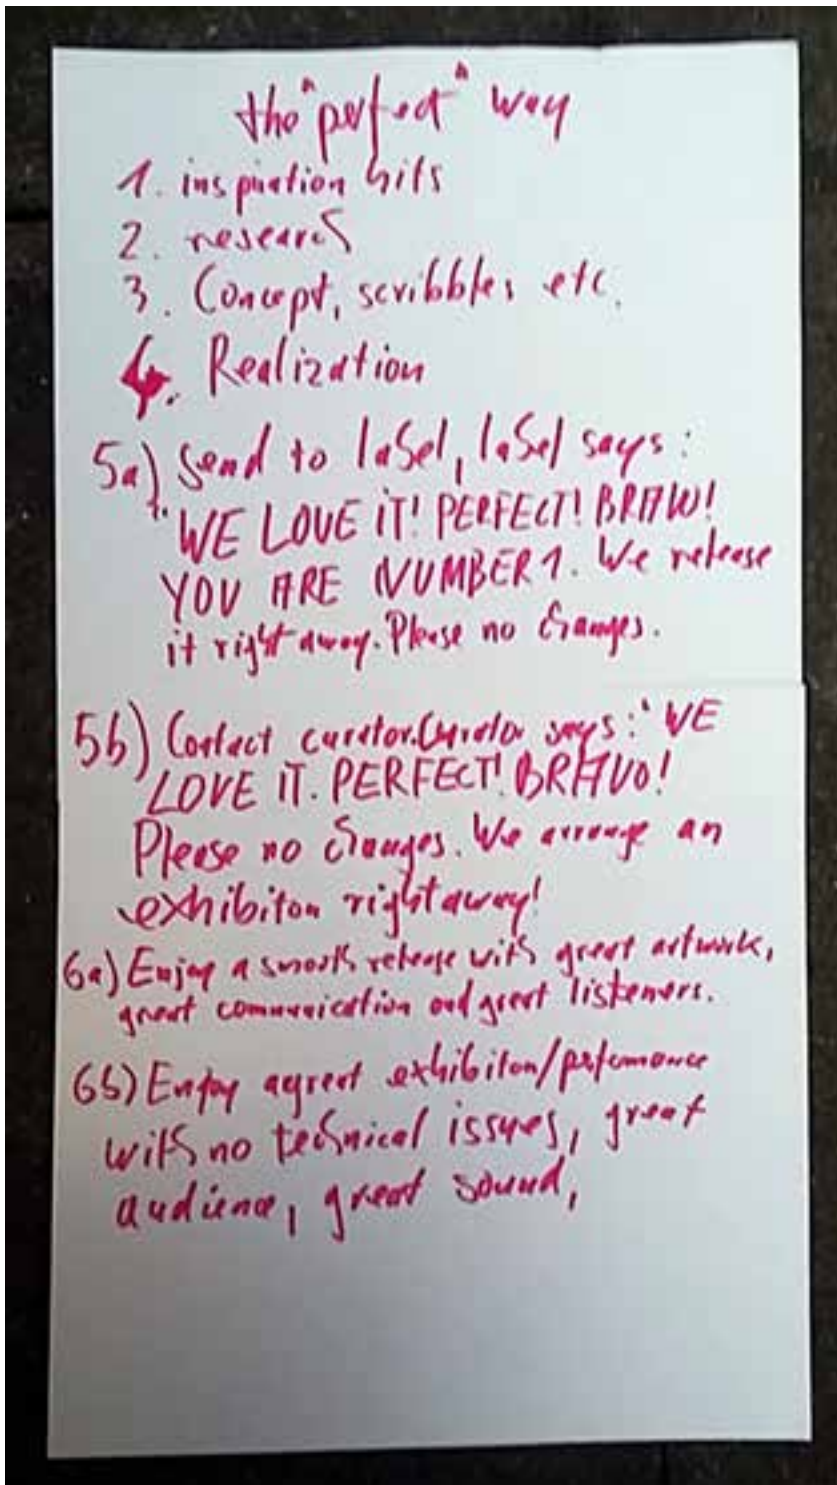 the "perfect" way
1. inspiration hits
2. research
3. Concept, scribbles etc.
4. Realization
5a) Send to label, label says:
"WE LOVE IT! PERFECT! BRAVO!
YOU ARE NUMBER 1. We release
it right away. Please no changes.
5b) Contact curator. Curator says: "WE
LOVE IT. PERFECT! BRAVO!
Please no changes. We arrange an
exhibiton right away!
6a) Enjoy a smooth release with great artwork,
great communication and great listeners.
6b) Enjoy a great exhibiton/perfomance
with no technical issues, great
audience, great sound,